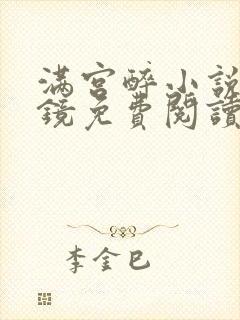 滿宮醉小說
鏡免費閱讀
李金巳